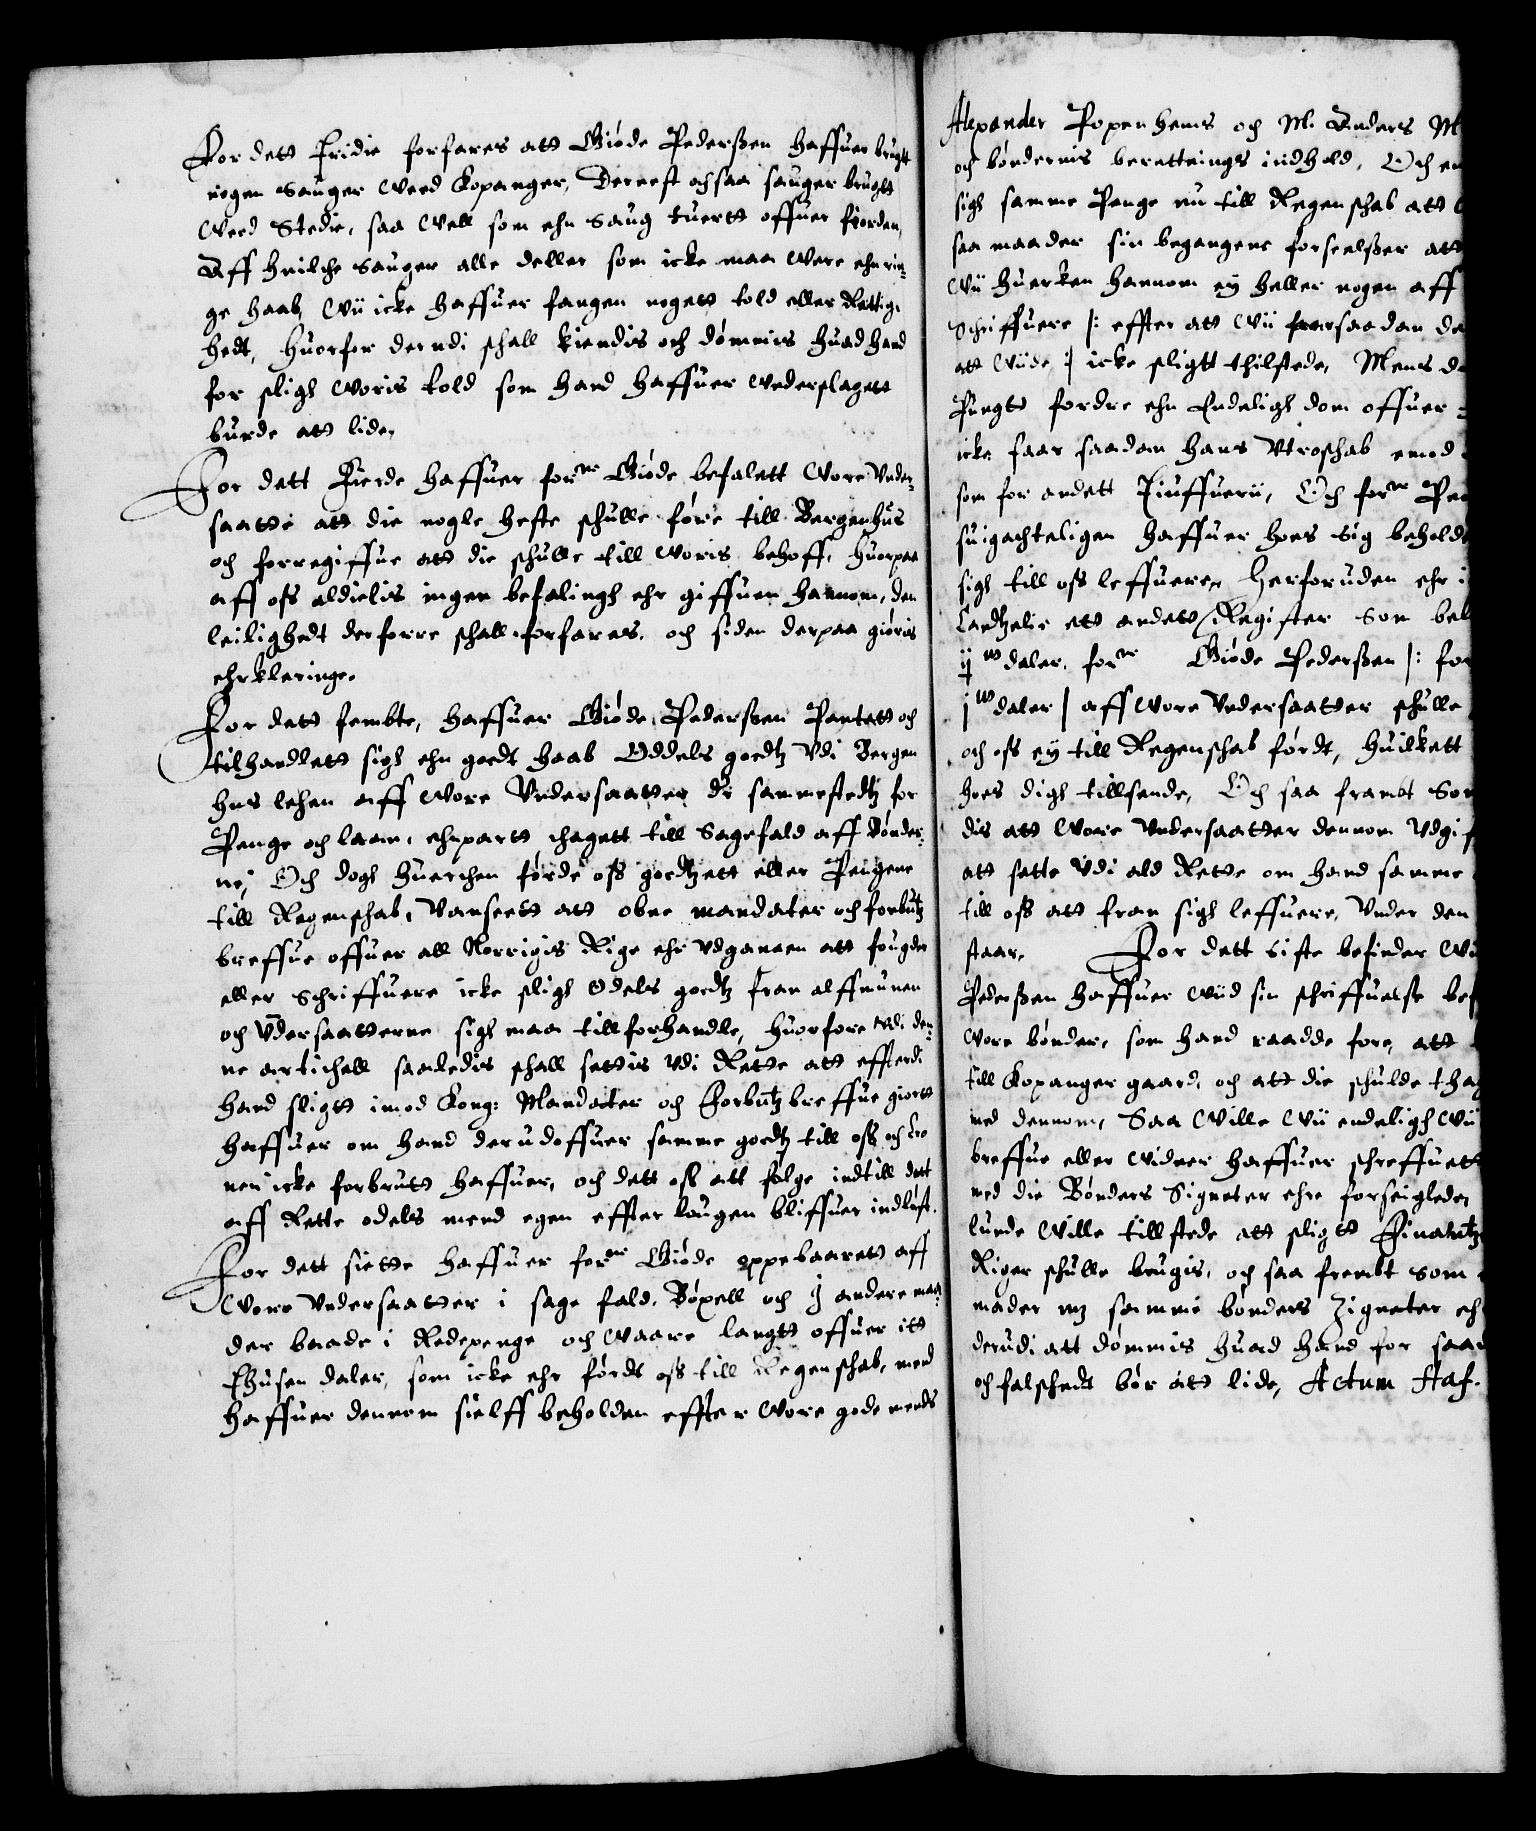 For dett Tridie forfares att Giøde Pederßen haffuer brugtt
nogen Sauger weed Kopanger, Dernest och saa sauger brugtt
weed Stedie, saa well som ehn Saug tuertt offuer fiorden,
Aff huilche Sauger alle deller som icke maa were ehn rin-
ge haab, wii icke haffuer fangen nogett told eller Rettig-
hedt, Huorfor derudi schall kiendis och dømmis huad hand
for sligh woris told som hand haffuer wederslagett
burde att lide,
For dett Fierde haffuer forne Giøde befalett wore Under-
saatte att die nogle heste schulle føre till Bergenhus
och forregiffue att die schulle till woris behoff, huorpaa
aff oss aldielis ingen befalingh ehr giffuen hannom, den
leilighedt derforre schall forfares, och siden derpaa giøris
ehrkleringe.
For dett fembte, haffuer Giøde Pederssen Pantett och
tilhandlett sigh ehn goedt haab Oddels goedtz Udi Bergen
hus lehen aff wore Undersaatter der sammestedtz for
Penge och laan, ehnpartt thagett till Sagefald aff Bønder-
ne, Och dogh huerchen førde oss goedtzett eller Pengene
till Regenschab, Uanseett att obne mandater och forbutz
breffue offuer all Norrigis Rige ehr udgangen att fougder
eller Schriffuere icke sligh Odels goedtz fran alffmuuen
och Undersaatterne sigh maa tillforhandle, huorfore udi den-
ne artichell saaledis schall settis udi Rette att effterdi
hand sligtt imod Kong: Mandater och Forbutzbreffue giortt
haffuer om hand derudoffuer samme goedtz till oss och Cro
nen icke forbrutt haffuer, och dett oss att følge indtill dett
aff Rette odels mend egen effter lougen bliffuer indløst.
For dett siette haffuer forne Giøde oppebaarett aff
wore Undersaatter i sage fald, Bøxell och i andere maa-
der baade i Redepenge och waare langtt offuer itt
Thusen daler, som icke ehr førdt oss till Regenschab, mend
haffuer dennom sielff beholden effter wore gode mends
Alexander Popenhems och M. Anders M
och bøndernis berettnings indhold, Och en
sigh samme Penge nu till Regenschab att
saa maader sin begangene forseelsser att
wii huerken hannom ey heller nogen aff
Schriffuere |: effter att wii saadan da
att wiide :| icke sligtt thilstede, Mens da
Pungtt fordre ehn Endeligh dom offuer
icke faar saadan hans utroschab emod
som for andett Tiuffuerii, Och forne Ped
suigachteligen haffuer hoes sig beholdt
sigh till oss leffuere, Herforuden ehr i
Landtzelie ett andett Register som bel
daler, forne Giøde Pederßen |: for
daler | aff wore Undersaatter schulle
och oss ey till Regenschab førdt, huilkett
hoes digh tillsende, Och saa frambt Som
dis att wore Undersaatter dennom udgif
att sette udi ald Rette om hand samme
till oss att fran sigh leffuere, Under den
staar, For dett siste befinder wii
Pederßen haffuer wiid sin schriffuelse bef
wore bønder, som hand raadde fore, att
till Kopanger gaard, och att die schulde thag
med dennom, Saa wille wii endeligh wii
breffue eller widner haffuer schreffuett
med die Bønders Signeter ehre forseigleden
lunde wille tillstede att sligtt Finantz
Riger schulle brugis, och saa frembt som
mader mz samme bønders Zigneter ehr
derudi att dømmis huad hand for saad
och falschedt bør att lide, Actum Haf.